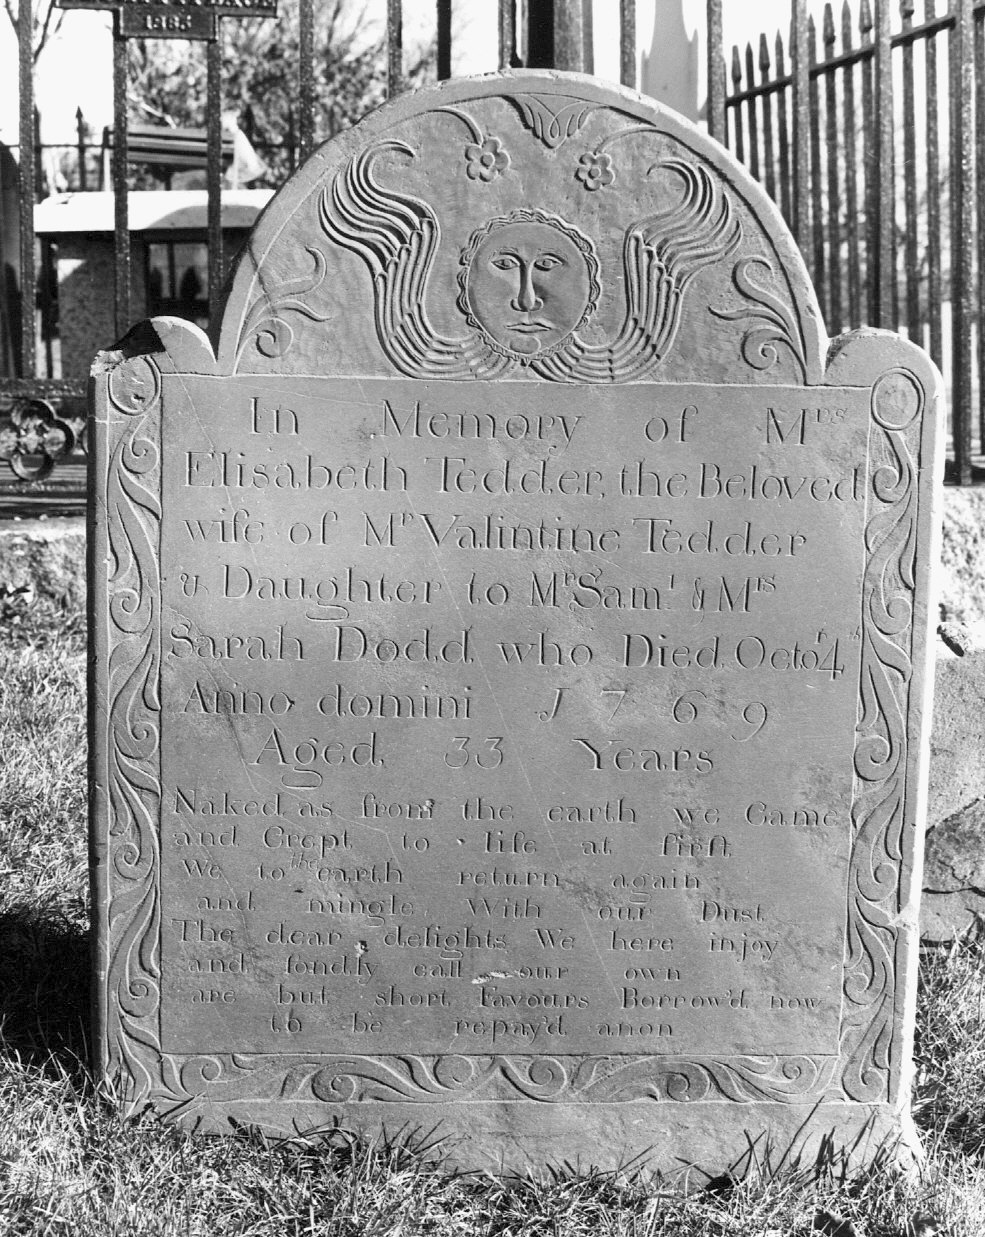 1885
In Memory of Mrs
Elisabeth Tedder, the Beloved
wife of Mr Valintine Tedder
& Daughter to Mr Samll & Mrs
Sarah Dodd who Died Octor 4th
Anno domini 1769
Aged 33 Years
Naked as from the earth we Came
and Crept to life at first
We to the earth return again
and mingle With our Dust
The dear delights We here injoy
and fondly call our own
are but short Favours Borrow'd now
to be repay'd anon